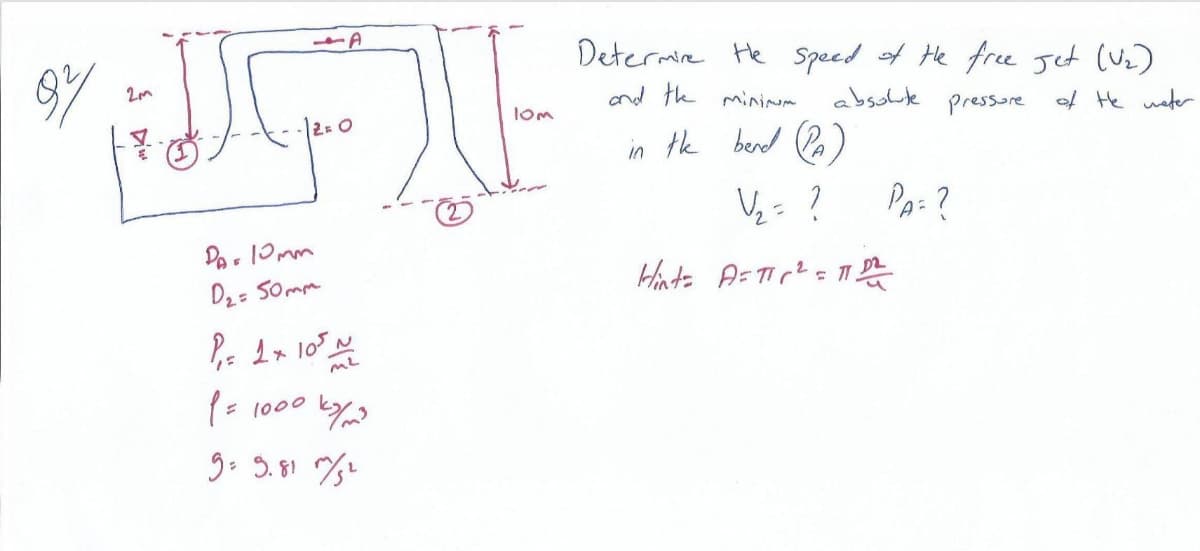 Q2/
2m
A
1
z=0
10m
2
DA = 10mm
D2 = 50mm
P1 = 1 x 10^5 N/m2
ρ = 1000 kg/m3
g = 9.81 m/s2
Determine the speed of the free jet (V2)
and the minimum absolute pressure of the water
in the bend (PA)
V2 = ? PA = ?
Hint= A = π r^2 = π D2/4